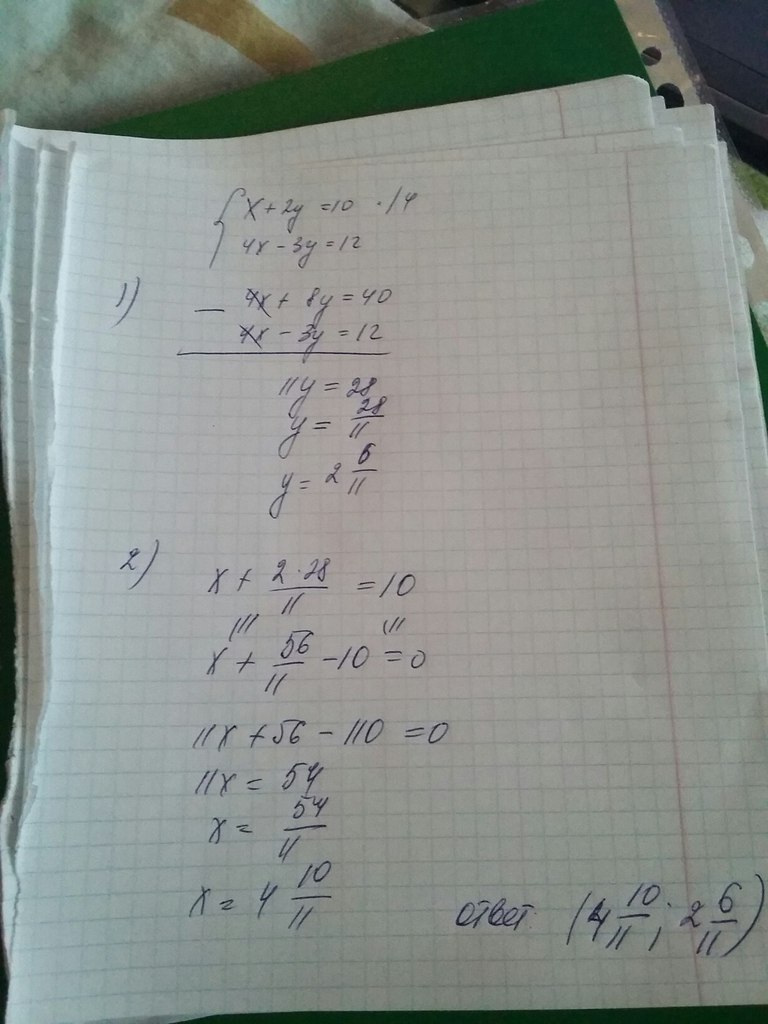 { x + 2y = 10 · /4
4x - 3y = 12
1) — 4x + 8y = 40
4x - 3y = 12
11y = 28
y = 28/11
y = 2 6/11
2) x + 2·28/11 = 10
x + 56/11 - 10 = 0
11x + 56 - 110 = 0
11x = 54
x = 54/11
x = 4 10/11
ответ (4 10/11; 2 6/11)